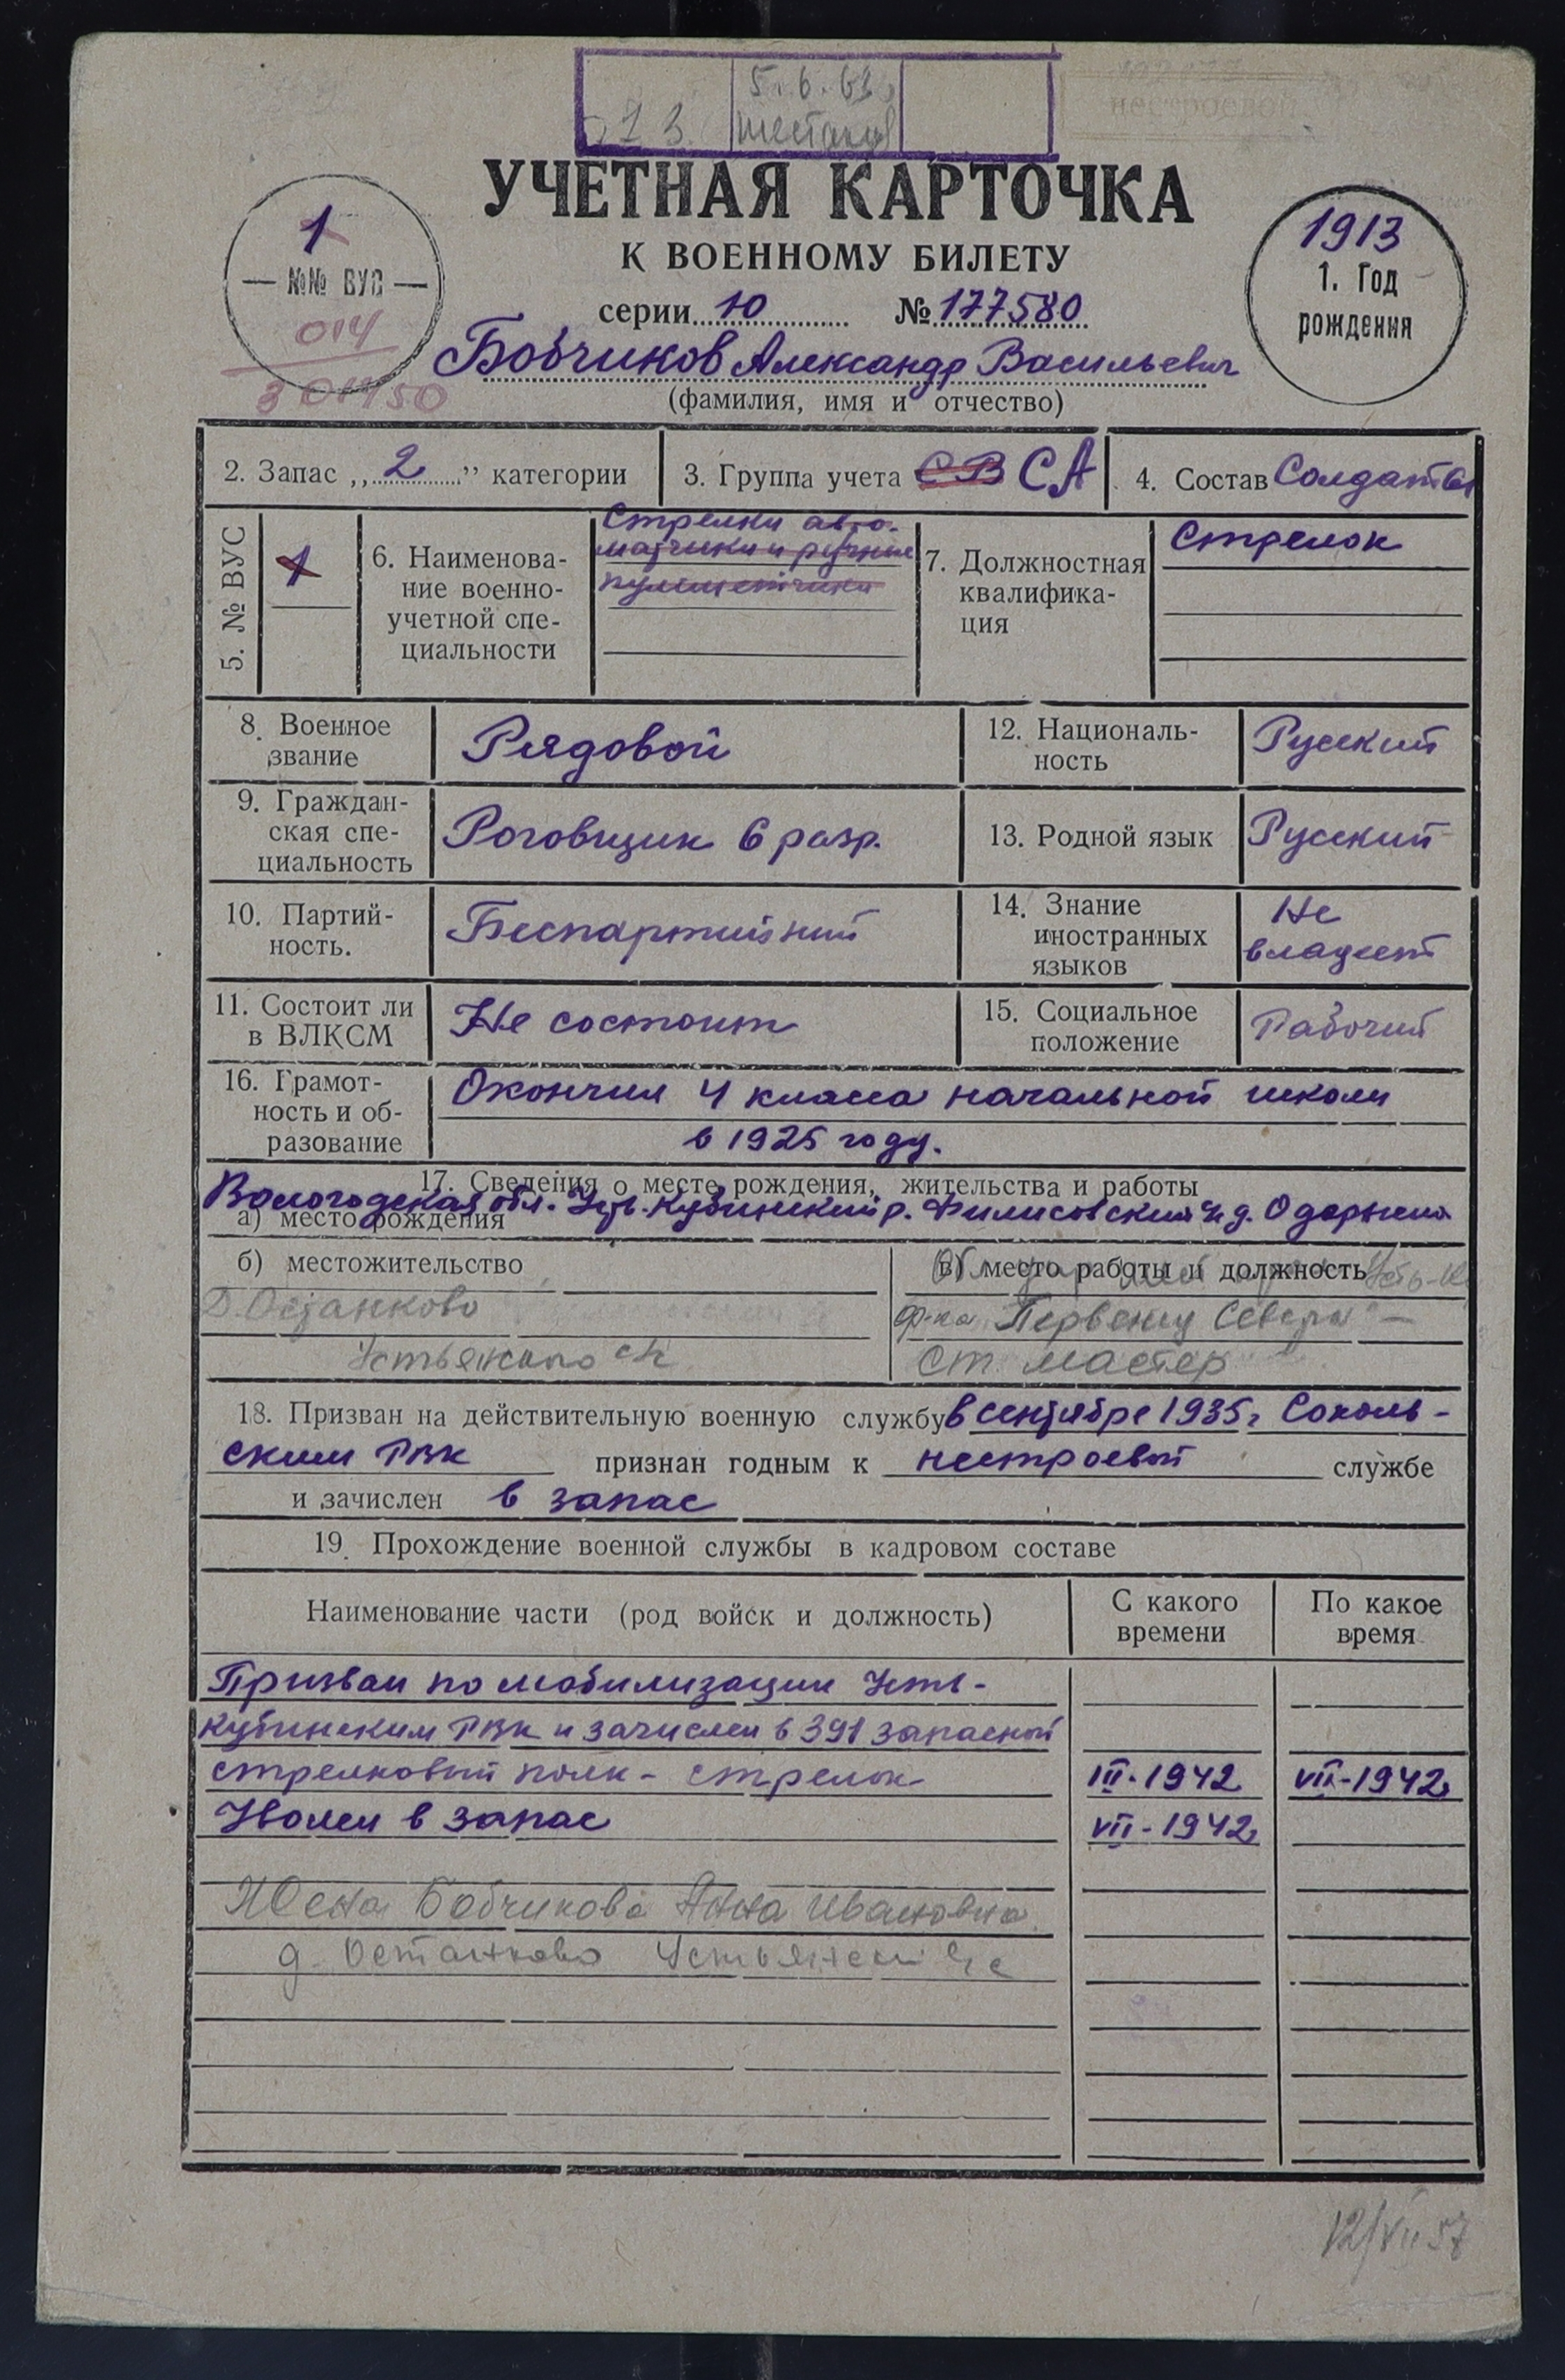 5.6.63
нестроевой
УЧЕТНАЯ КАРТОЧКА
К ВОЕННОМУ БИЛЕТУ
серии 10 № 177580
1
№№ ВУС
014
301450
1913
1. Год
рождения
Бобчиков Александр Васильевич
(фамилия, имя и отчество)
2. Запас „2” категории
3. Группа учета СВ СА
4. Состав Солдаты
5. № ВУС
1
6. Наименова-
ние военно-
учетной спе-
циальности
Стрелки авто-
матчики и ручные
пулеметчики
7. Должностная
квалифика-
ция
Стрелок
8. Военное
звание
Рядовой
12. Националь-
ность
Русский
9. Граждан-
ская спе-
циальность
Роговщик 6 разр.
13. Родной язык
Русский
10. Партий-
ность.
Беспартийный
14. Знание
иностранных
языков
Не
владеет
11. Состоит ли
в ВЛКСМ
Не состоит
15. Социальное
положение
Рабочий
16. Грамот-
ность и об-
разование
Окончил 4 класса начальной школы
в 1925 году.
17. Сведения о месте рождения, жительства и работы
Вологодская обл. Усть-Кубинский р. Филисовский д.
а) место рождения
б) местожительство
Д. Останково
Устьянского с/с
в) место работы и должность
ф-ка Первенец Севера
ст. мастер
18. Призван на действительную военную службу в сентябре 1935г. Соколь-
ским РВК признан годным к нестроевой службе
и зачислен в запас
19. Прохождение военной службы в кадровом составе
Наименование части (род войск и должность)
С какого
времени
По какое
время
Призван по мобилизации Усть-
Кубинским РВК и зачислен в 391 запасной
стрелковый полк - стрелок III-1942 VII-1942г
Уволен в запас VII-1942г
Жена Бобчикова Анна Ивановна
д. Останково Устьянский с/с
12/VII 57